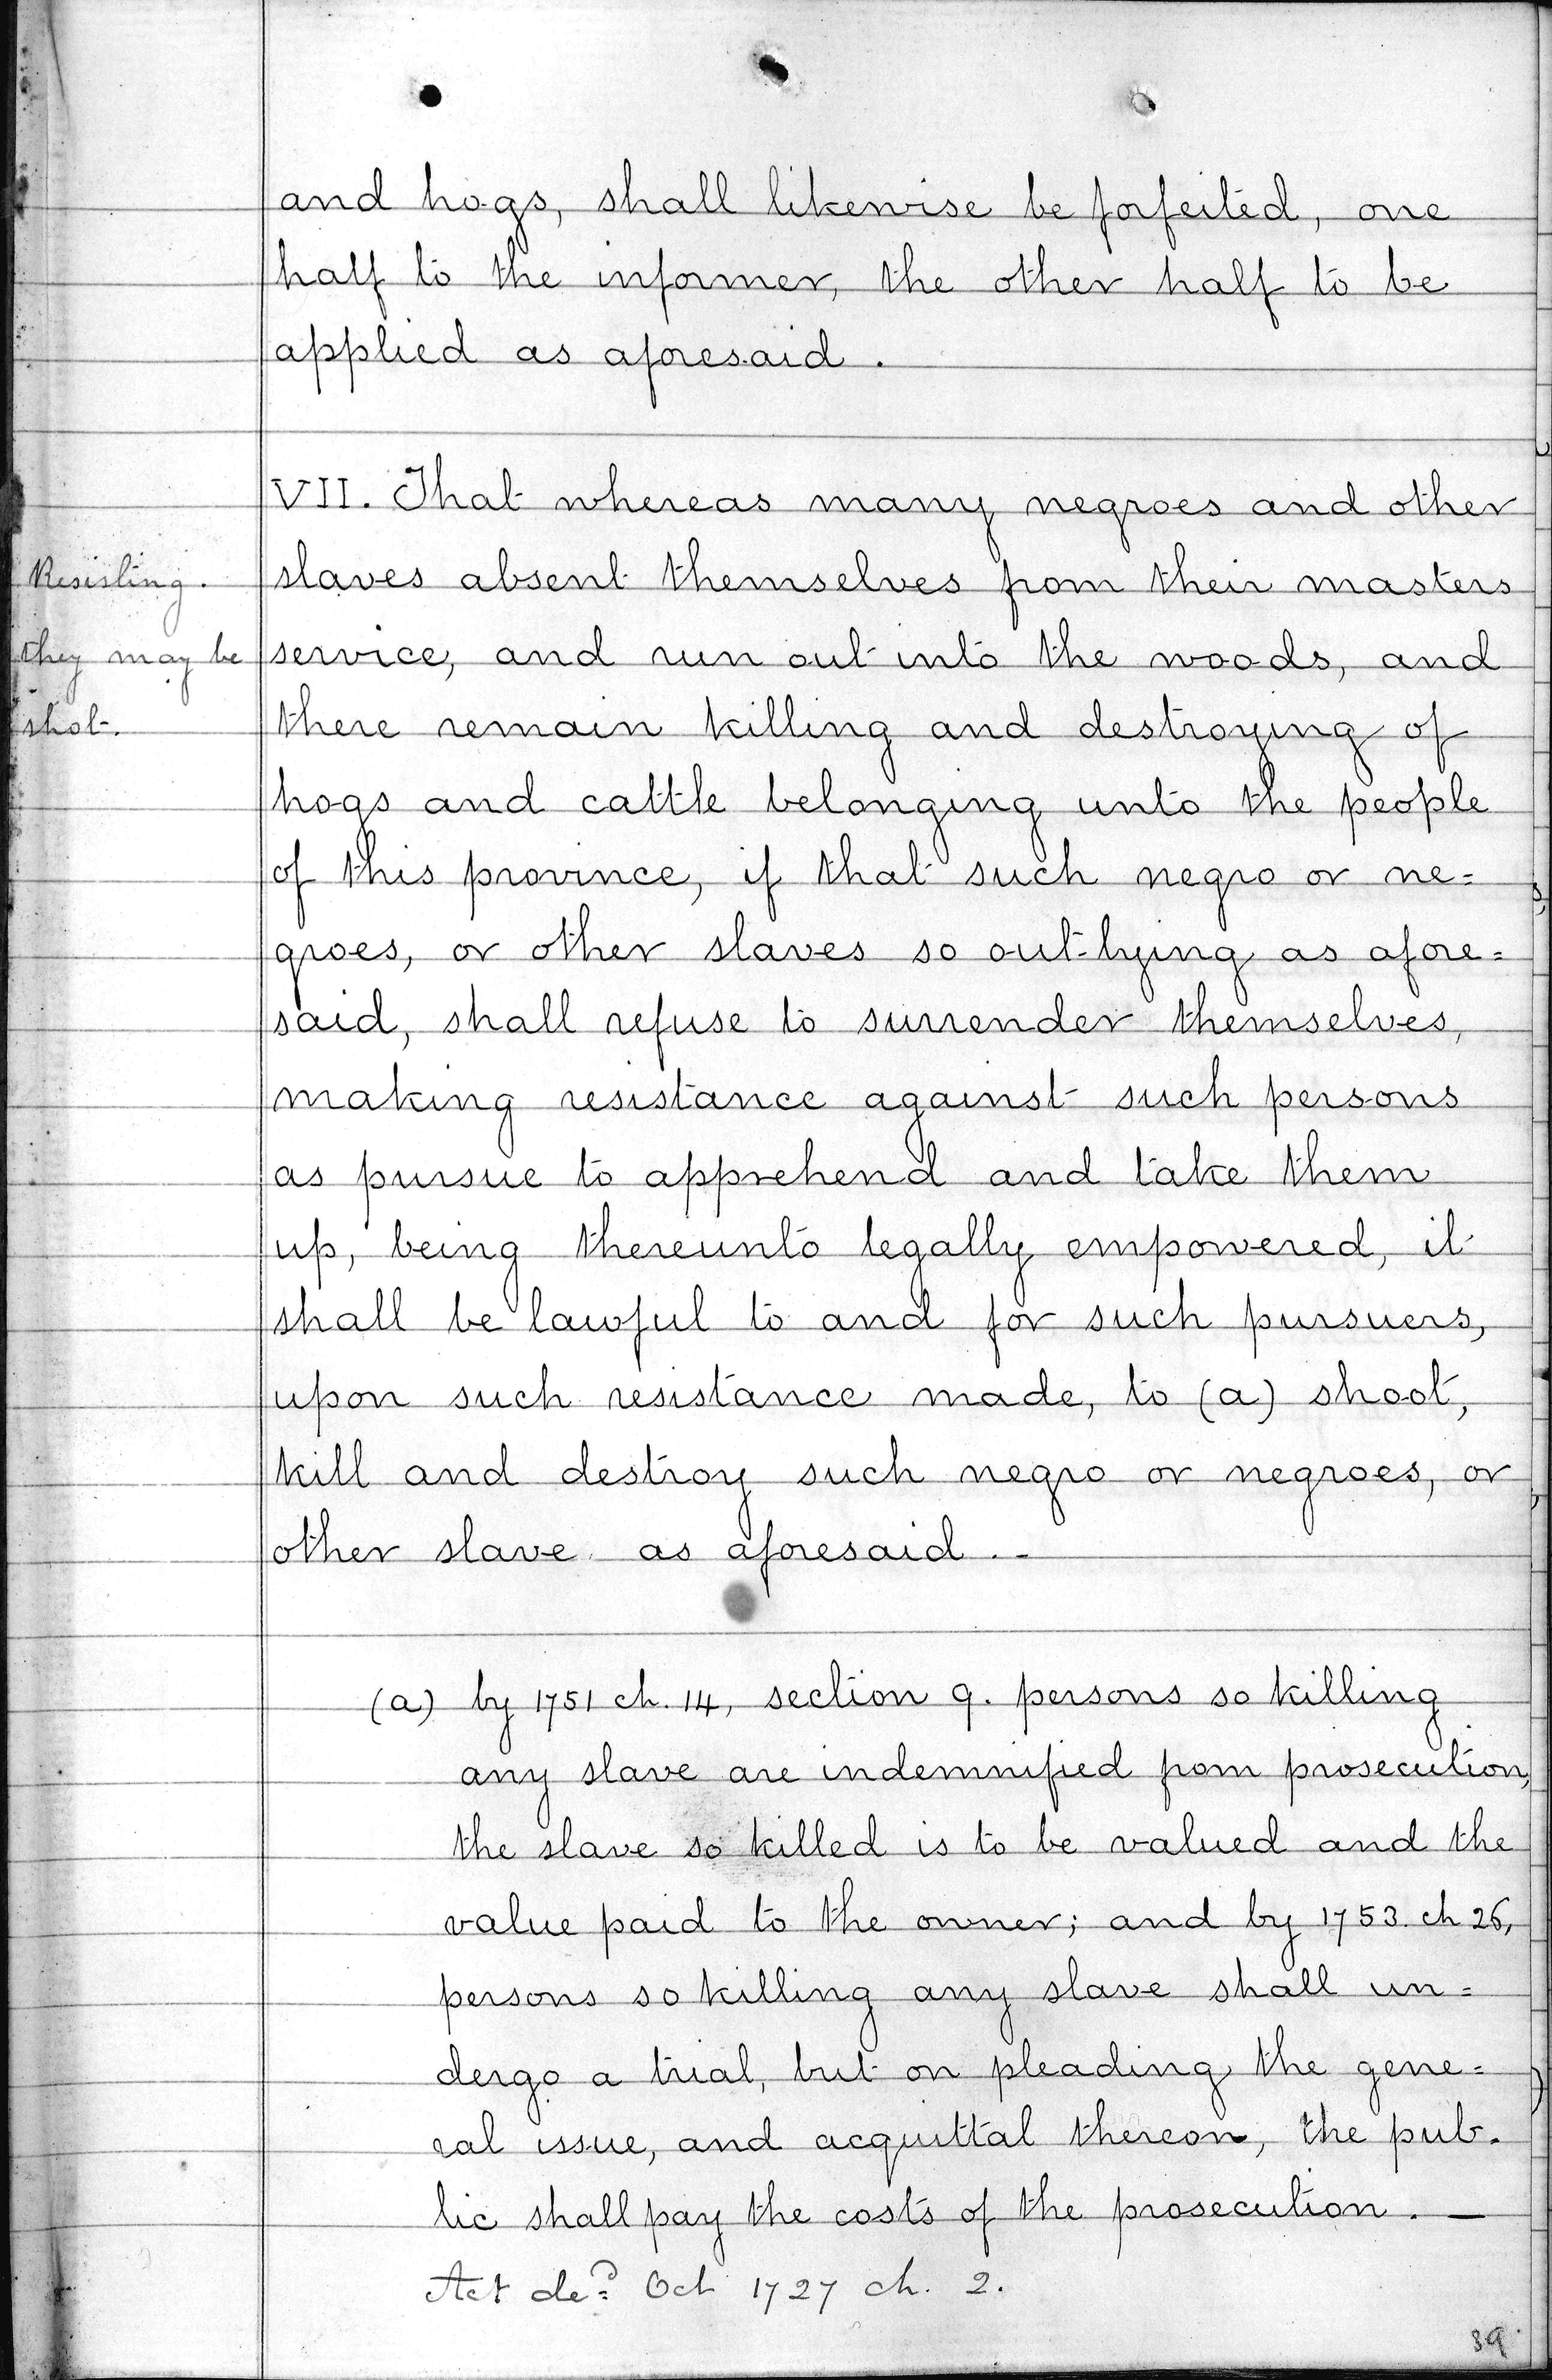 and hogs, shall likewise be forfeited, one
half to the informer, the other half to be
applied as aforesaid.
VII. That whereas many negroes and other
Resisting.
slaves absent themselves from their masters
they may be
service, and run out into the woods, and
shot.
there remain killing and destroying of
hogs and cattle belonging unto the people
of this province, if that such negro or ne=
groes, or other slaves so out-lying as afore=
said, shall refuse to surrender themselves,
making resistance against such persons
as pursue to apprehend and take them
up, being thereunto legally empowered, it
shall be lawful to and for such pursuers,
upon such resistance made, to (a) shoot,
kill and destroy such negro or negroes, or
other slave as aforesaid.-
(a) by 1751 ch. 14, section 9. persons so killing
any slave are indemnified from prosecution,
the slave so killed is to be valued and the
value paid to the owner; and by 1753. ch 26,
persons so killing any slave shall un=
dergo a trial, but on pleading the gene=
ral issue, and acquittal thereon, the pub-
lic shall pay the costs of the prosecution. —
Act Oct 1727 ch. 2.
39